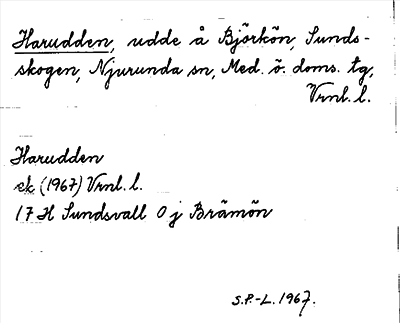 Harudden, udde å Björkön, Sunds-
skogen, Njurunda sn, Med. ö. doms. tg,
Vrnl. l.
Harudden
ek (1967) Vrnl. l.
17 H Sundsvall 0 j Brämön
S.P.-L. 1967.